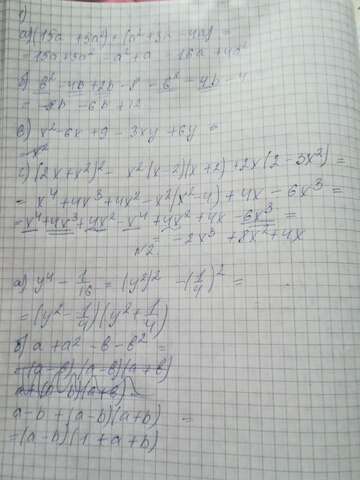 1)
а) (15a + 5a²) + (a² + 3a - 4a) =
= 15a + 5a² - a² + a = 16a + 4a²
б) b² - 4b + 2b - 8 - b² - 4b - 4
= -2b - 6b + 12
в) x² - 6x + 9 - 3xy + 6y =
-x²
г) (2x + x²)² - x²(x-2)(x+2) + 2x(2-3x²) =
= x⁴ + 4x³ + 4x² - x²(x²-4) + 4x - 6x³ =
= x⁴ + 4x³ + 4x² - x⁴ + 4x² + 4x - 6x³ =
= -2x³ + 8x² + 4x
№2.
а) y⁴ - 1/16 = (y²)² - (1/4)² =
= (y² - 1/4)(y² + 1/4)
б) a + a² - b - b² =
a-b + (a-b)(a+b) =
= (a-b)(1+a+b)